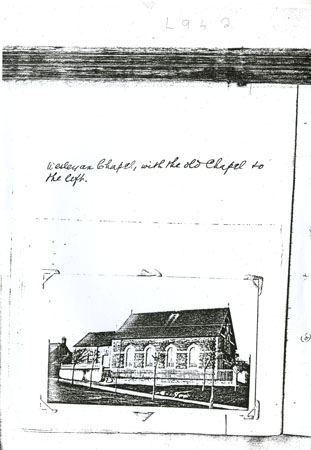 L942
Wesleyan Chapel, with the old Chapel to
the left.